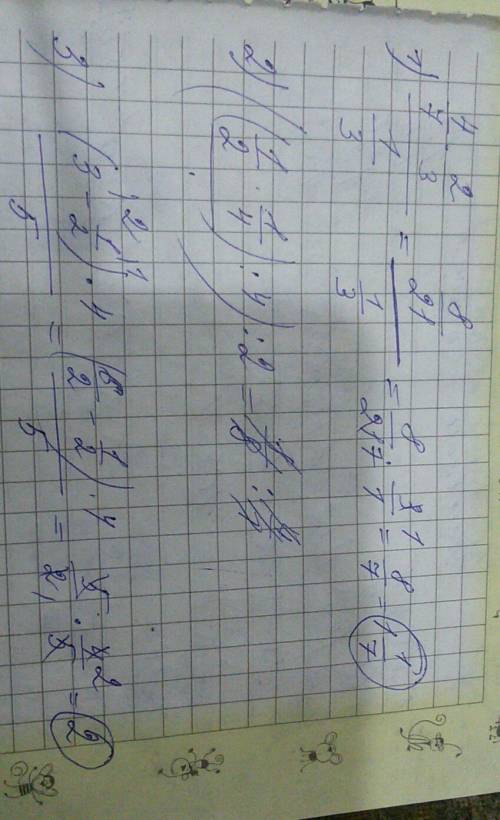 1) 4/7 · 2/3 / 1/3 = 8/21 / 1/3 = 8/21 · 3/1 = 8/7 = 1 1/7
2) ((1/2 · 1/4) · 4) : 2 =
3) (3 - 1/2) · 4 / 5 = (6/2 - 1/2) · 4 / 5 = 5/2 · 4/5 = 2